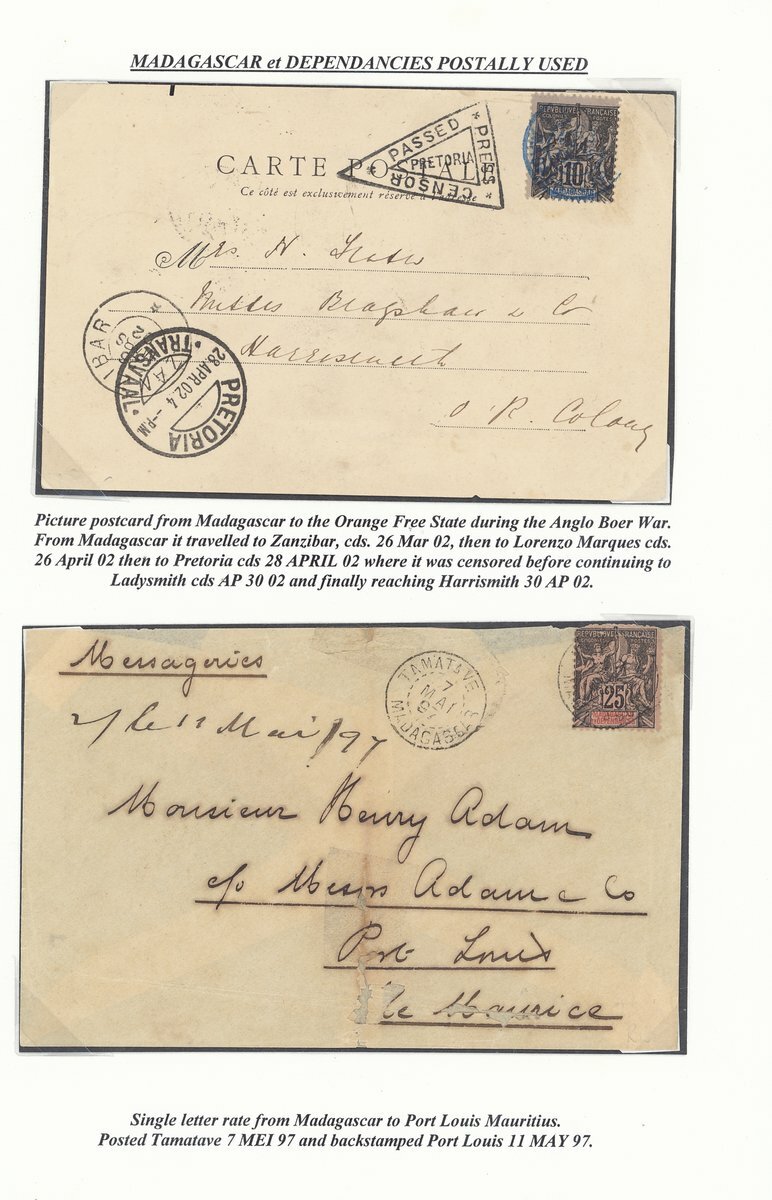 MADAGASCAR et DEPENDANCIES POSTALLY USED
CARTE POSTALE
Ce côté est exclusivement réservé à l'adresse
PASSED
PRESS
CENSOR
PRETORIA
REPUBLIQUE FRANÇAISE
COLONIES POSTES
10
Mrs. N.
Bragshaw & Co
Harrismith
O. R. Colony
IBAR
PRETORIA
28 APR 02 4 - P.M
TRANSVAAL
Picture postcard from Madagascar to the Orange Free State during the Anglo Boer War.
From Madagascar it travelled to Zanzibar, cds. 26 Mar 02, then to Lorenzo Marques cds.
26 April 02 then to Pretoria cds 28 APRIL 02 where it was censored before continuing to
Ladysmith cds AP 30 02 and finally reaching Harrismith 30 AP 02.
Messageries
TAMATAVE
7
MAI
97
MADAGASCAR
REPUBLIQUE FRANÇAISE
COLONIES POSTES
25
le 11 Mai /97
Monsieur Henry Adam
c/o Messrs Adam & Co
Port Louis
Ile Maurice
Single letter rate from Madagascar to Port Louis Mauritius.
Posted Tamatave 7 MEI 97 and backstamped Port Louis 11 MAY 97.